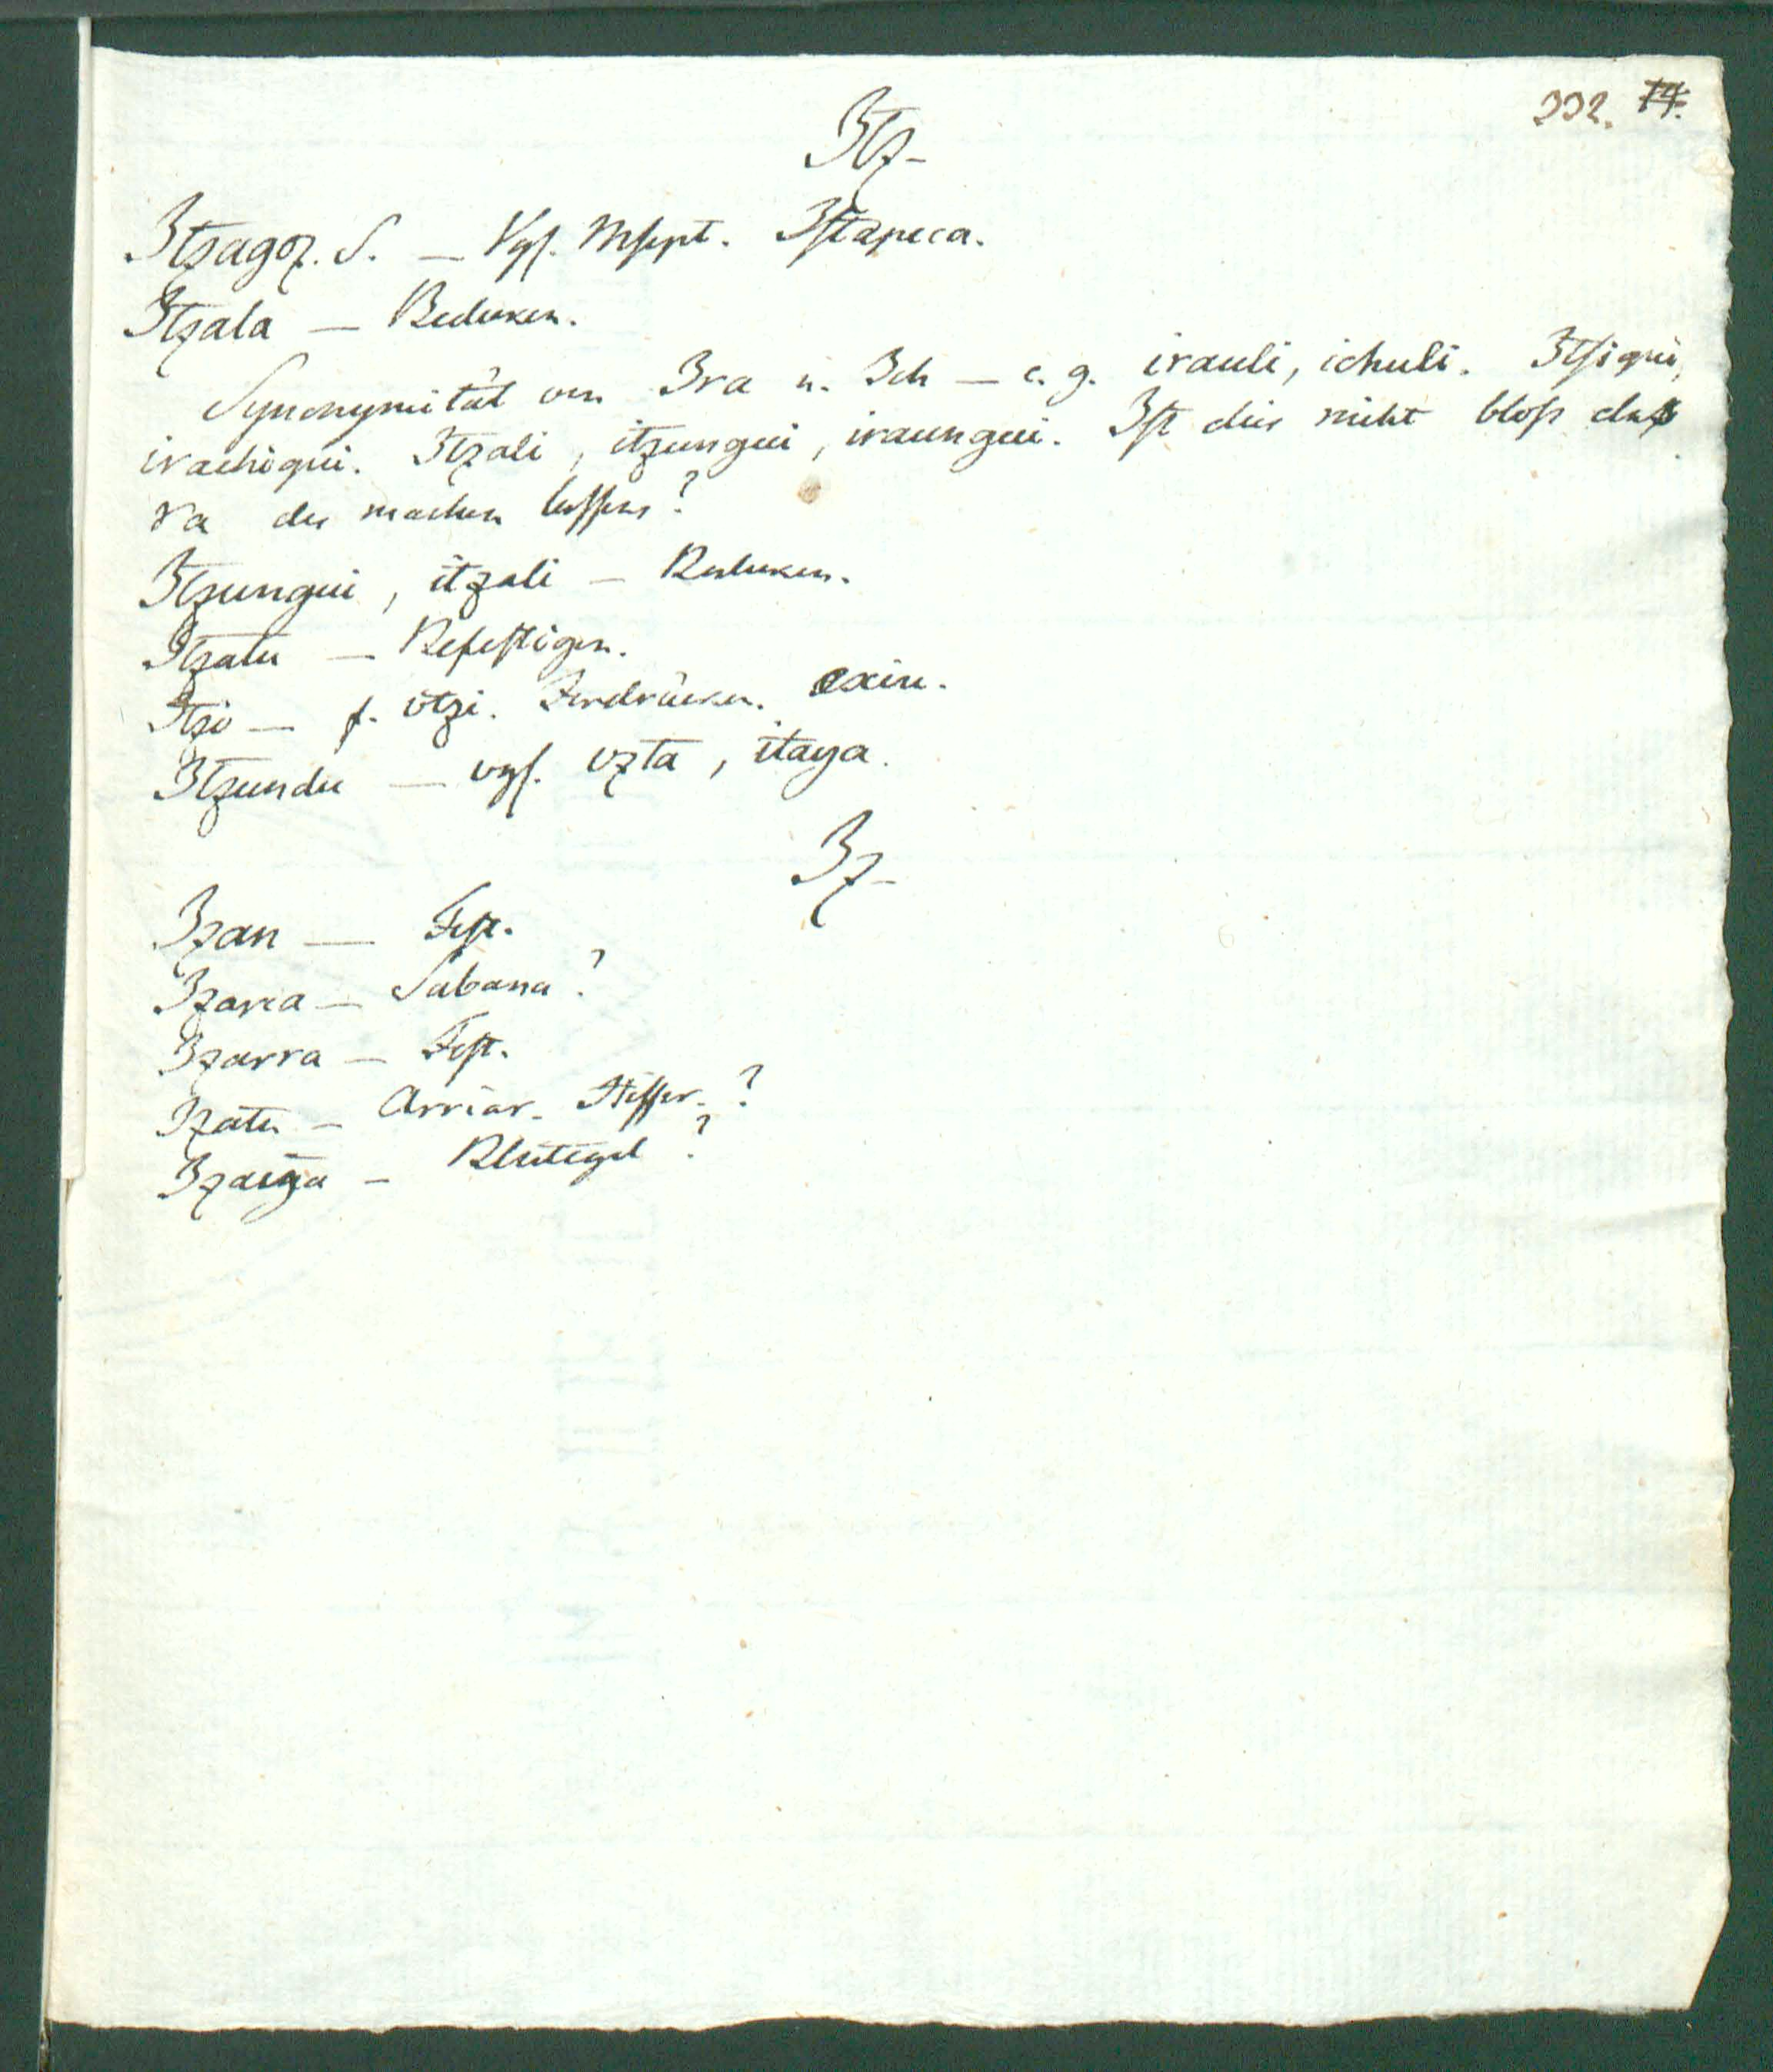 232. 74.
Itz-
Itzagoz. S. — Vgl. Mscpt. Istapeca.
Itzala — Bedecken.
Synonymität von Ira u. Ich — e. g. irauli, ichuli. Itsiqui,
irachiqui. Itzali, itzungui, iraungui. Ist dies nicht bloss das
ra des machen lassens?
Itzungui, itzali — Bedecken.
Itzatu — Befestigen.
Itzo — f. otzi. Zerdrücken. exiu.
Itzundu — vgl. uzta, itaya.
Iz-
Izan — Fest.
Izarea — Sabana?
Izarra — Fest.
Izatu — Arriar. Hissen.?
Izaiya — Blutegel?